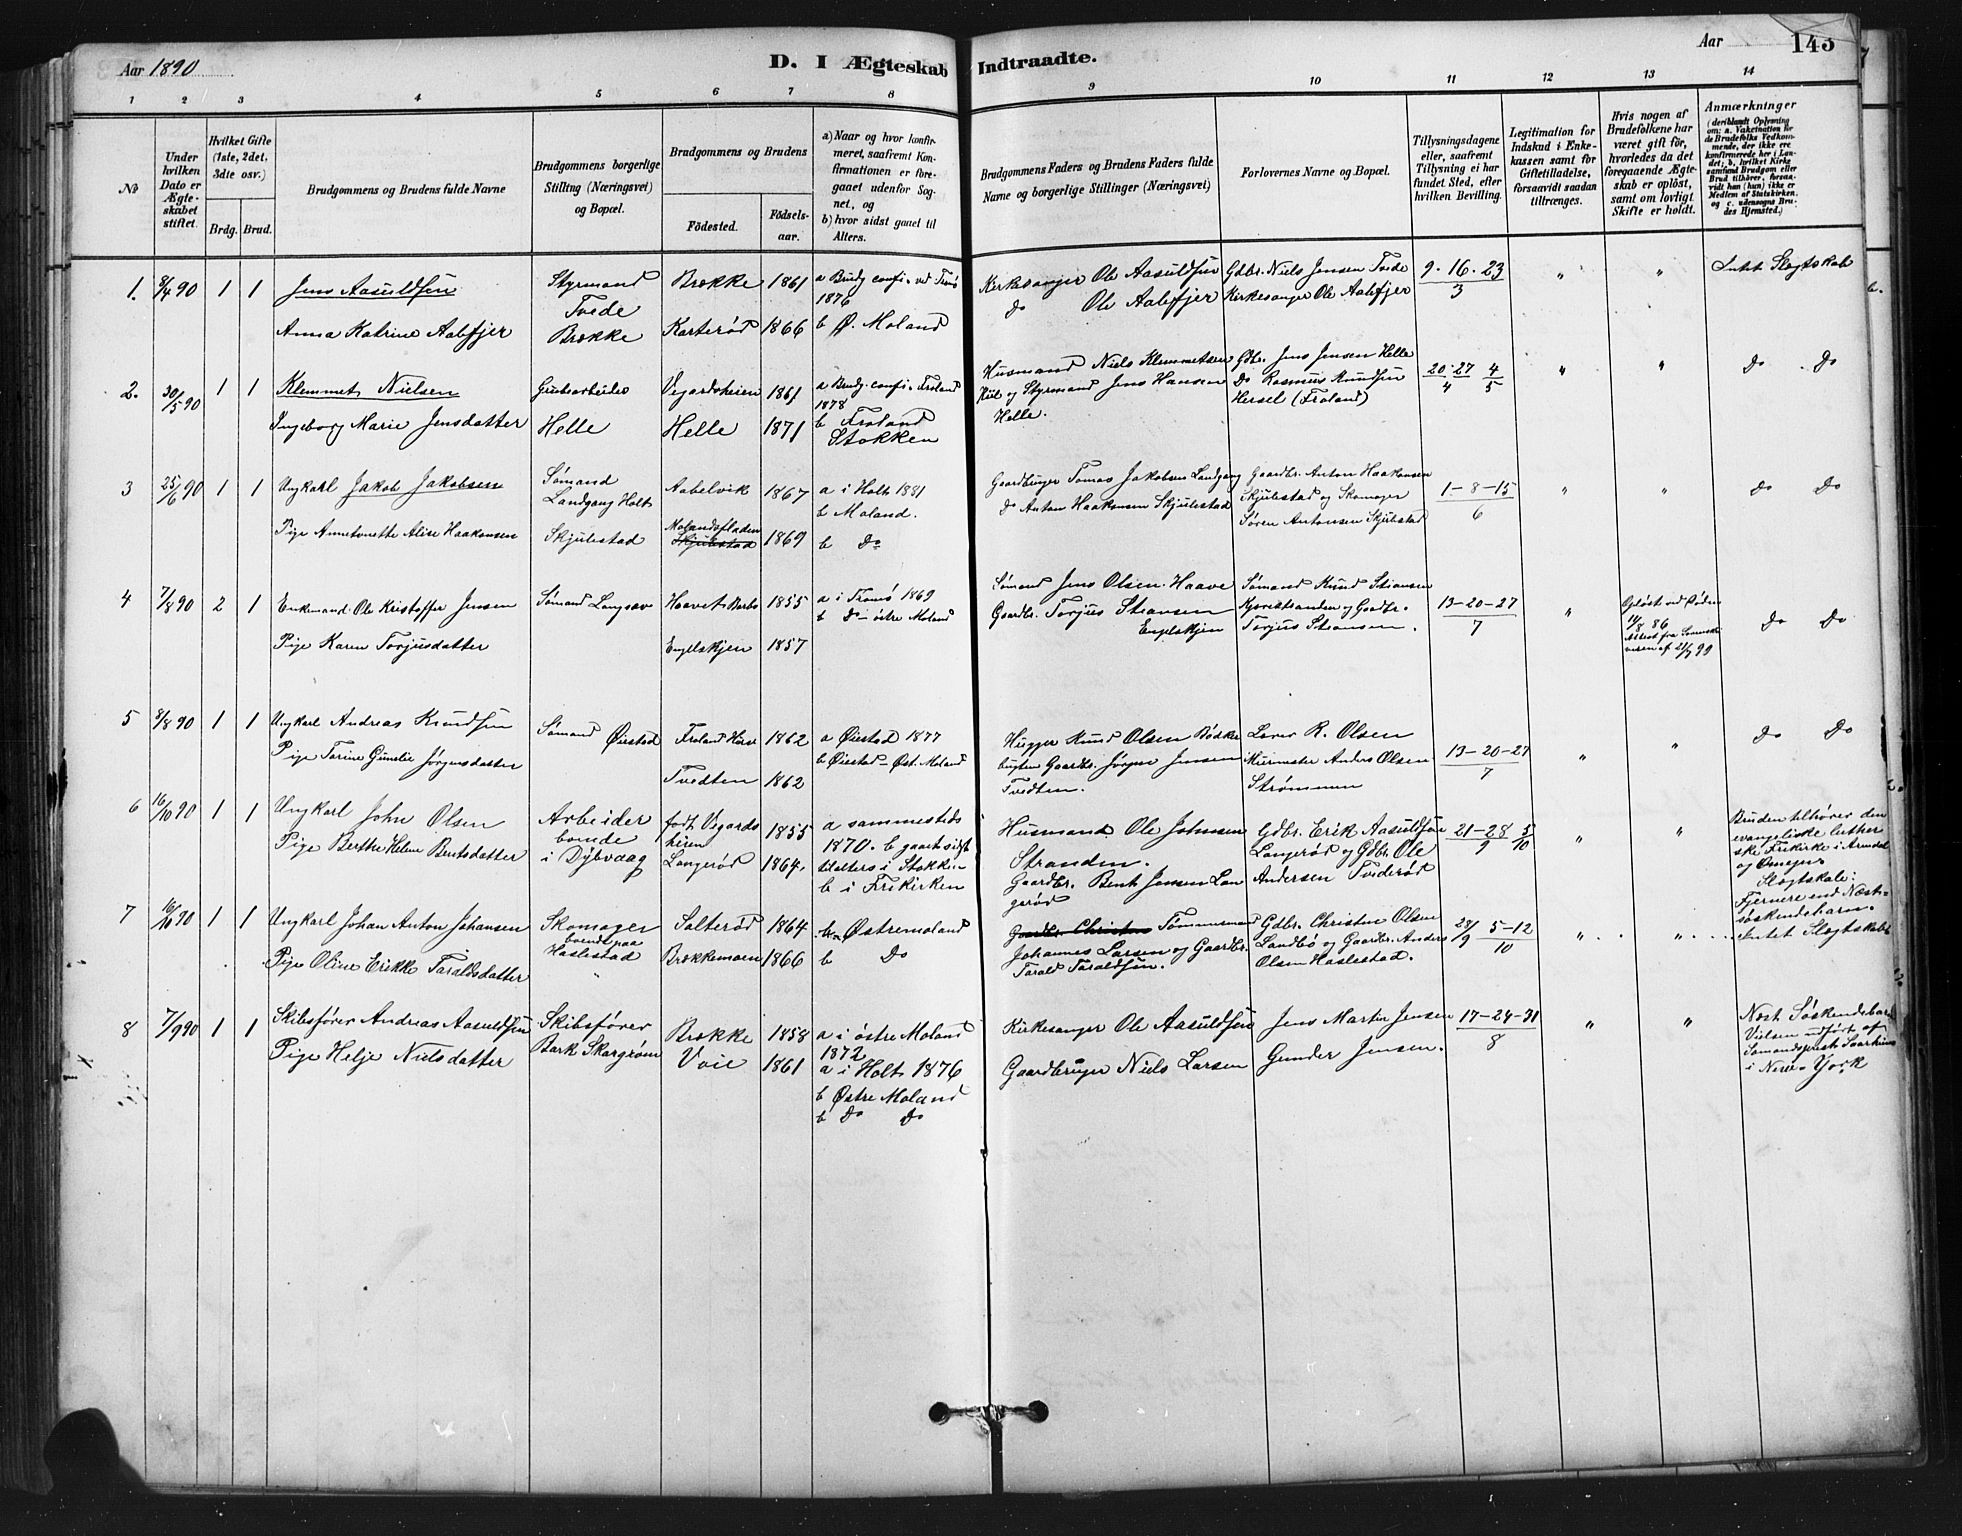 Aar 1890
D. I Ægteskab Indtraadte.
Aar 145
1 2 3 4 5 6 7 8 9 10 11 12 13 14
No
Under hvilken Dato er Ægteskabet stiftet.
Hvilket Gifte (1ste, 2det, 3die osv.)
Brdg. Brud.
Brudgommens og Brudens fulde Navne
Brudgommens borgerlige Stilling (Næringsvei) og Bopæl.
Brudgommens og Brudens
Fødested. Fødselsaar.
a) Naar og hvor konfirmeret, saafremt Konfirmationen er foregaaet udenfor Sognet, og
b) hvor sidst gaaet til Alters.
Brudgommens Faders og Brudens Faders fulde Navne og borgerlige Stillinger (Næringsvei)
Forlovernes Navne og Bopæl.
Tillysningsdagene eller, saafremt Tillysning ei har fundet Sted, efter hvilken Bevilling.
Legitimation for Indskud i Enkekassen samt for Giftetilladelse, forsaavidt saadan tiltrænges.
Hvis nogen af Brudefolkene har været gift før, hvorledes da det foregaaende Ægteskab er opløst, samt om lovligt Skifte er holdt.
Anmærkninger
(deriblandt Oplysning om: a. Vaksination for de Brudefolks Vedkommende, der ikke ere konfirmerede her i Landet; b. hvilket Kirkesamfund Brudgom eller Brud tilhører, forsaavidt han (hun) ikke er Medlem af Statskirken, og c. udensogns Brudes Hjemsted.)
1. 9/4 90 1 1 Jens Aasuldsen Styrmand Tvede Brække 1861 a Brudg confi. ved Tromø 1876
Anna Katrine Aabesjer Brække Karterød 1866 b Ø. Moland
Kirkesanger Ole Aasuldsen Gdbr. Niels Jensen Tvede 9. 16. 23 / 3 " " Intet Slægtskab
Do Ole Aabesjer Kirkesanger Ole Aabesjer
2. 30/5 90 1 1 Klemmet Nielsen Grubearbeider Vegardsheien 1861 a Brudg. confi. Froland 1878
Ingeborg Marie Jensdatter Helle Helle 1871 b Froland Stokken
Husmand Niels Klemmetsen Gdbr. Jens Jensen Helle 20. 27/4 4/5 " " Do Do
og Styrmand Jens Hansen Do Rasmus Knudsen
Helle. Hersel (Froland)
3 25/6 90 1 1 Ungkarl Jakob Jakobsen Sømand Landgang Holt Aabelvik 1867 a i Holt 1881
b Moland.
Pige Annetonette Alise Haakonsen Skjulestad Molandsfladen Skjulestad 1869 b Do
Gaardbruger Tomas Jakobsen Landgang Gaardbr. Anton Haakonsen 1-8-15 / 6 " " Do Do
Do Anton Haakonsen Skjulestad Skjulestad og Skomager
Søren Antonsen Skjulestad
4 7/8 90 2 1 Enkemand Ole Kristoffer Jensen Sømand Langsæv Haavet Barbo 1855 a i Tromø 1869
b Do - østre Moland
Pige Karen Torjusdatter Engelskjen 1857
Sømand Jens Olsen Haave Sømand Knud Stiansen 13-20-27 / 7 " Opløst ved Døden 11/8 86 Attest fra
Gaardbr. Torjus Stiansen og Gaardbr. Do Do
Engelskjen Torjus Stiansen.
5 8/8 90 1 1 Ungkarl Andreas Knudsen Sømand Øiestad Froland 1862 a Øiestad 1877
Pige Torine Gunelie Jørgensdatter Tvedten 1862 b Øiestad - Øst. Moland
Hugger Knud Olsen Bødker Lars R. Olsen 13-20-27 / 7 " " Do Do
bugten Gaardbr. Jørgen Jensen Murmester Anders Olsen
Tvedten. Strømmen
6 16/10 90 1 1 Ungkarl John Olsen Arbeider boende i Dybvaag født Vegardsheien 1855 a sammesteds 1870. b gaaet sidst til alters i Stokken
Pige Berthe Helene Bentsdatter Langerød 1864. b i Frikirken
Husmand Ole Johnsen Gdbr. Erik Aasuldsen 21-28/9 5/10 " "
Stranden. Langerød og Gdbr. Ole
Gaardbr. Bent Jensen Langerød Andersen Tviderød
Bruden tilhører den evangeliske lutherske Frikirke i Arendal og Omegn.
Slægtskab: Fjernere end Næstsøskendebarn.
7 16/10 90 1 1 Ungkarl Johan Anton Johansen Skomager boende paa Haslestad Salterød 1864 b Østremoland
Pige Oline Erikke Taraldsdatter Brækkemoen 1866 b Do
Gaardbr. Christen Tømmermand Gdbr. Christen Olsen 28/9 5-12/10 " " Intet Slægtskab
Johannes Larsen og Gaardbr. Landbø og Gaardbr. Anders
Tarald Taraldsen. Olsen Haslestad.
8 7/9 90 1 1 Skibsfører Andreas Aasuldsen Skibsfører Brække 1858 a i østre Moland 1872
Pige Helje Nielsdatter Bark Skargrøm Voie 1861 a i Holt 1876
b Østre Moland
b Do Do
Kirkesanger Ole Aasuldsen Jens Martin Jensen 17-24-31 / 8 " " Næst Søskendebarn
Gaardbruger Niels Larsen Gunder Jensen. Vielsen udført af
Sømandspræst
i New-York